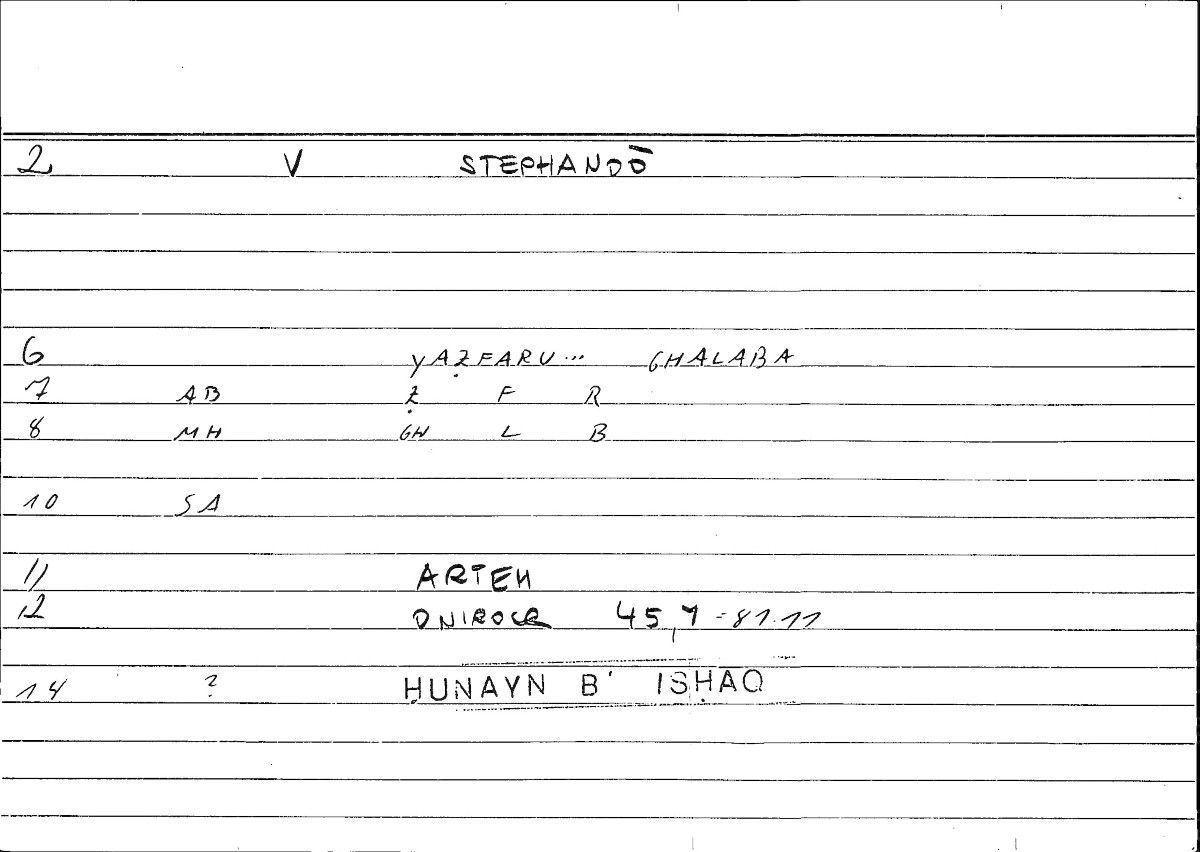 2 V STEPHANOŌ
6 YAẒFARU... GHALABA
7 AB Ẓ F R
8 MH GH L B
10 SA
11 ARTEM
12 ONIROCR 45,7 = 81.11
14 ? ḤUNAYN B' ISḤAQ